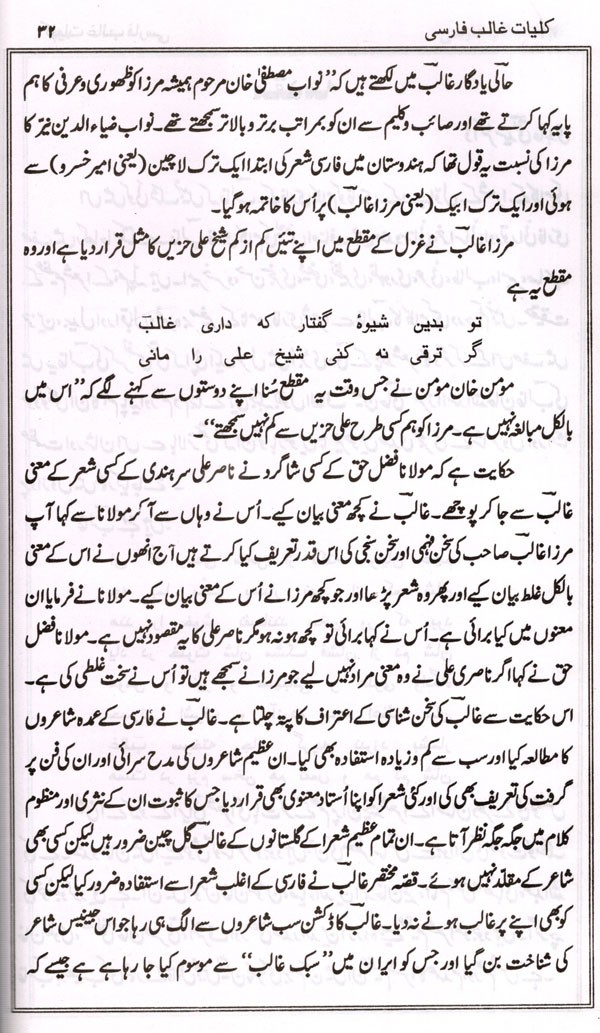 کلیات غالب فارسی ۳۲
حالی یادگار غالبؔ میں لکھتے ہیں کہ ”نواب مصطفیٰ خان مرحوم ہمیشہ مرزا کو ظہوری و عرفی کا ہم
پایہ کہا کرتے تھے اور صائب و کلیم سے ان کو بمراتب برتر و بالاتر سمجھتے تھے۔ نواب ضیاء الدین نیّر کا
مرزا کی نسبت یہ قول تھا کہ ہندوستان میں فارسی شعر کی ابتدا ایک ترک لاچین (یعنی امیر خسرو) سے
ہوئی اور ایک ترک ایبک (یعنی مرزا غالبؔ) پر اُس کا خاتمہ ہو گیا۔
مرزا غالبؔ نے غزل کے مقطع میں اپنے تئیں کم از کم شیخ علی حزیں کا مثل قرار دیا ہے اور وہ
مقطع یہ ہے
تو بدین شیوۂ گفتار کہ داری غالبؔ
گر ترقی نہ کنی شیخ علی را مانی
مؤمن خان مؤمن نے جس وقت یہ مقطع سُنا اپنے دوستوں سے کہنے لگے کہ ”اس میں
بالکل مبالغہ نہیں ہے۔ مرزا کو ہم کسی طرح علی حزیں سے کم نہیں سمجھتے“
حکایت ہے کہ مولانا فضل حق کے کسی شاگرد نے ناصر علی سرہندی کے کسی شعر کے معنی
غالبؔ سے جا کر پوچھے۔ غالبؔ نے کچھ معنی بیان کیے۔ اُس نے وہاں سے آ کر مولانا سے کہا آپ
مرزا غالبؔ صاحب کی سخن فہمی اور سخن سنجی کی اس قدر تعریف کیا کرتے ہیں آج انھوں نے اس کے معنی
بالکل غلط بیان کیے اور پھر وہ شعر پڑھا اور جو کچھ مرزا نے اُس کے معنی بیان کیے۔ مولانا نے فرمایا ان
معنوں میں کیا برائی ہے۔ اُس نے کہا برائی تو کچھ ہو نہ ہو مگر ناصر علی کا یہ مقصود نہیں ہے۔ مولانا فضل
حق نے کہا اگر ناصری علی نے وہ معنی مراد نہیں لیے جو مرزا نے سمجھے ہیں تو اُس نے سخت غلطی کی ہے۔
اس حکایت سے غالبؔ کی سخن شناسی کے اعتراف کا پتہ چلتا ہے۔ غالبؔ نے فارسی کے عمدہ شاعروں
کا مطالعہ کیا اور سب سے کم و زیادہ استفادہ بھی کیا۔ ان عظیم شاعروں کی مدح سرائی اور ان کی فن پر
گرفت کی تعریف بھی کی اور کئی شعرا کو اپنا اُستاد معنوی بھی قرار دیا جس کا ثبوت ان کے نثری اور منظوم
کلام میں جگہ جگہ نظر آتا ہے۔ ان تمام عظیم شعرا کے گلستانوں کے غالبؔ گل چین ضرور ہیں لیکن کسی بھی
شاعر کے مقلّد نہیں ہوئے۔ قصہ مختصر غالبؔ نے فارسی کے اغلب شعرا سے استفادہ ضرور کیا لیکن کسی
کو بھی اپنے پر غالب ہونے نہ دیا۔ غالبؔ کا ڈکشن سب شاعروں سے الگ ہی رہا جو اس جینیس شاعر
کی شناخت بن گیا اور جس کو ایران میں ”سبک غالب“ سے موسوم کیا جا رہا ہے ہے جیسے کہ